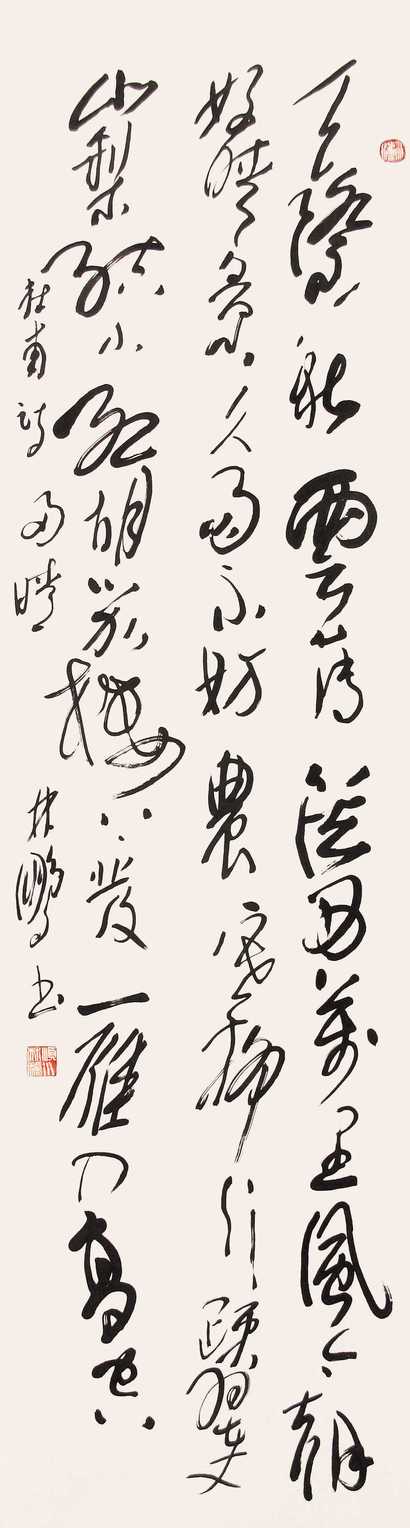 天際秋雲薄從西萬里風今朝
好晴景久雨不妨農塞柳行疎翠
山梨結小紅胡笳樓上發一雁入高空
杜甫詩雨晴 林鵬書